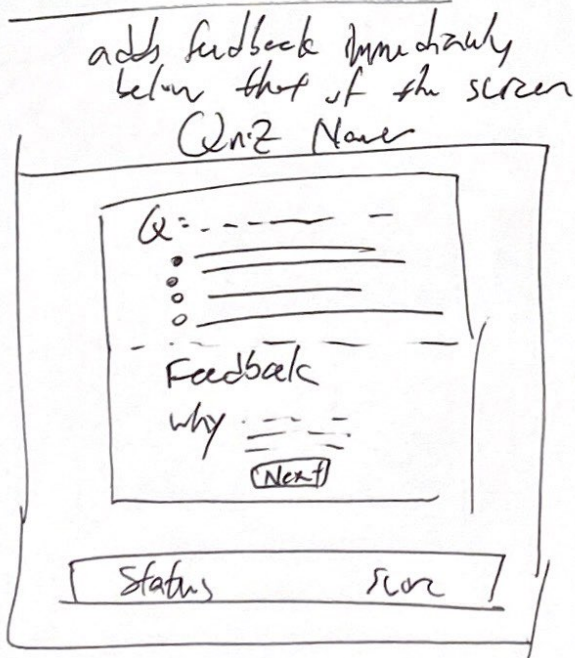 adds feedback immediately
below that of the screen
Quiz Name
Q:
Feedback
why
Next
Status Score